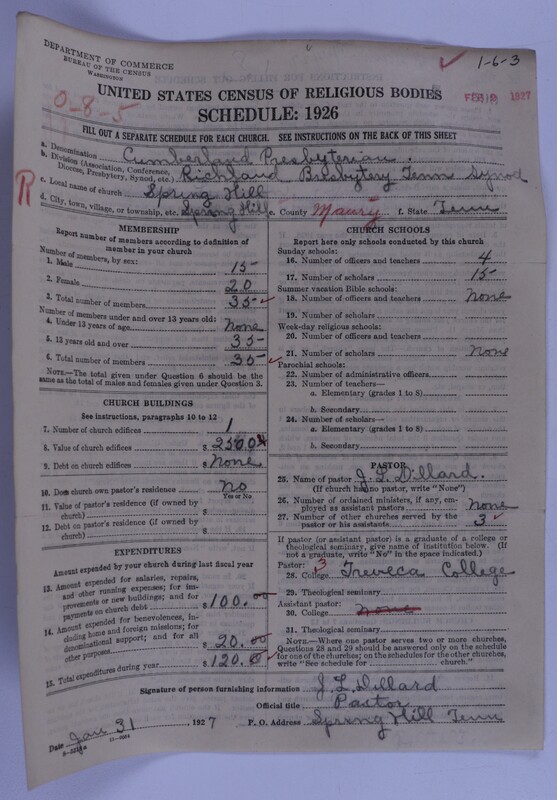 DEPARTMENT OF COMMERCE
BUREAU OF THE CENSUS
WASHINGTON
1-6-3
UNITED STATES CENSUS OF RELIGIOUS BODIES
0-8-5
SCHEDULE: 1926
1927
FILL OUT A SEPARATE SCHEDULE FOR EACH CHURCH. SEE INSTRUCTIONS ON THE BACK OF THIS SHEET
a. Denomination Cumberland Presbyterian.
b. Division (Association, Conference, Diocese, Presbytery, Synod, etc.) Richland Presbytery Tenn Synod
R
c. Local name of church Spring Hill
d. City, town, village, or township, etc. Spring Hill e. County Maury f. State Tenn
MEMBERSHIP
Report number of members according to definition of member in your church
Number of members, by sex:
1. Male 15
2. Female 20
3. Total number of members 35
Number of members under and over 13 years old:
4. Under 13 years of age None
5. 13 years old and over 35
6. Total number of members 35
NOTE.—The total given under Question 6 should be the same as the total of males and females given under Question 3.
CHURCH BUILDINGS
See instructions, paragraphs 10 to 12
7. Number of church edifices 1
8. Value of church edifices $ 2500
9. Debt on church edifices $ None
10. Does church own pastor's residence No
Yes or No
11. Value of pastor's residence (if owned by church) $
12. Debt on pastor's residence (if owned by church) $
EXPENDITURES
Amount expended by your church during last fiscal year
13. Amount expended for salaries, repairs, and other running expenses; for improvements or new buildings; and for payments on church debt $ 100.00
14. Amount expended for benevolences, including home and foreign missions; for denominational support; and for all other purposes $ 20.00
15. Total expenditures during year $ 120.0
CHURCH SCHOOLS
Report here only schools conducted by this church
Sunday schools:
16. Number of officers and teachers 4
17. Number of scholars 15
Summer vacation Bible schools:
18. Number of officers and teachers None
19. Number of scholars
Week-day religious schools:
20. Number of officers and teachers
21. Number of scholars None
Parochial schools:
22. Number of administrative officers
23. Number of teachers—
a. Elementary (grades 1 to 8)
b. Secondary
24. Number of scholars—
a. Elementary (grades 1 to 8)
b. Secondary
PASTOR
25. Name of pastor J. L. Dillard.
(If church has no pastor, write "None")
26. Number of ordained ministers, if any, employed as assistant pastors None
27. Number of other churches served by the pastor or his assistants 3
If pastor (or assistant pastor) is a graduate of a college or theological seminary, give name of institution below. (If not a graduate, write "No" in the space indicated.)
Pastor: 3
28. College Treveca College
29. Theological seminary
Assistant pastor:
30. College None
31. Theological seminary
NOTE.—Where one pastor serves two or more churches, Questions 28 and 29 should be answered only on the schedule for one of the churches; on the schedules for the other churches, write "See schedule for church."
Signature of person furnishing information J. L. Dillard
Official title Pastor
Date Jan 31, 1927 P. O. Address Spring Hill Tenn